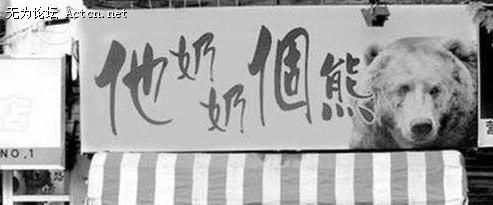 无为论坛 Actcn.net
他奶奶個熊
店
NO.1